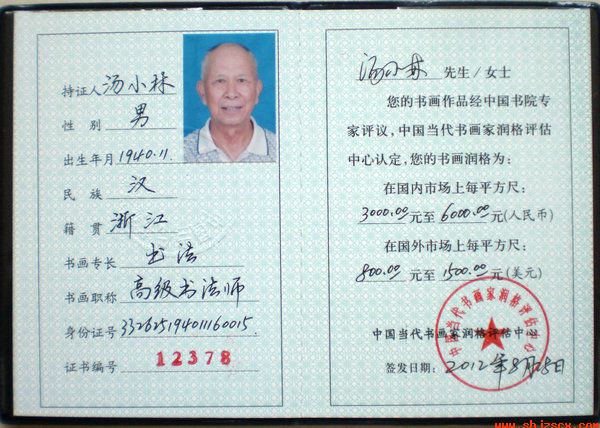 持证人 汤小林
性别 男
出生年月 1940.11.
民族 汉
籍贯 浙江
书画专长 书法
书画职称 高级书法师
身份证号 332625194011160015.
证书编号 12378
汤小林 先生/女士
您的书画作品经中国书院专
家评议，中国当代书画家润格评估
中心认定，您的书画润格为：
在国内市场上每平方尺：
3000.00元至6000.00元(人民币)
在国外市场上每平方尺：
800.00元至1500.00元(美元)
中国当代书画家润格评估中心
中国当代书画家润格评估中心
签发日期：2012年8月28日
www.shjzscx.com